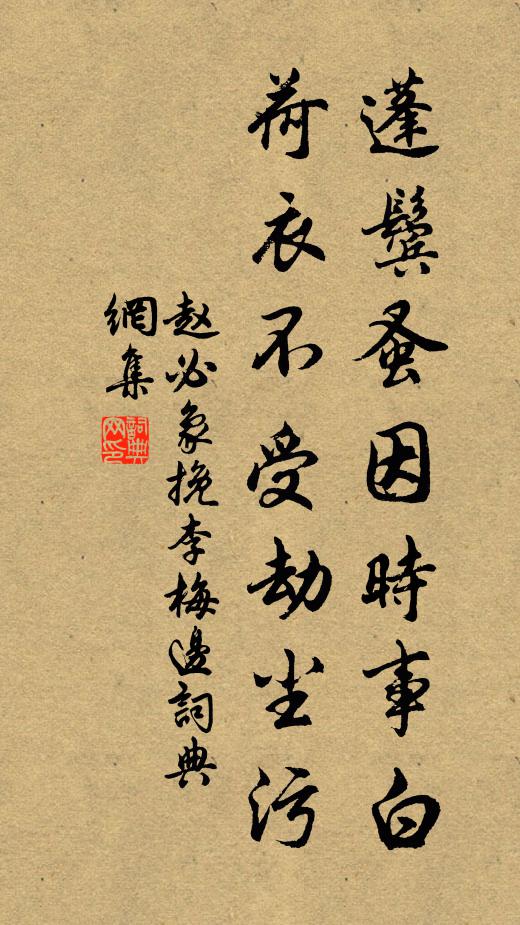 蓬鬢蚤因時事白
荷衣不受劫尘污
趙必象挽李梅邊詞典
網集
詞典
网印